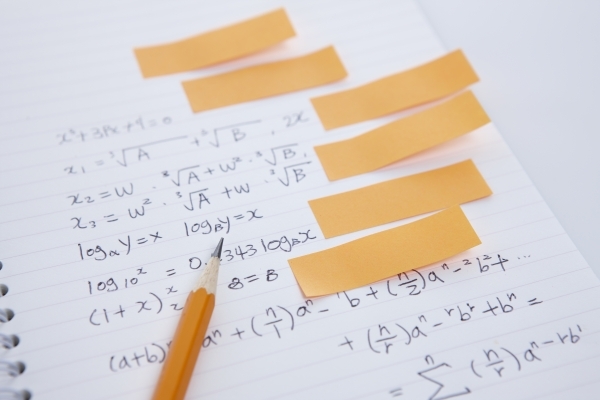 x³+3Px+q=0
x₁ = ³√A + ³√B , 2x
x₂ = W · ³√A + W² · ³√B,
x₃ = W² · ³√A + W · ³√B
logₐy=x logʙy=x
log10ˣ = 0. 343 logʙx
(1+x) 8=B
(a+b) aⁿ + (n/1)aⁿ⁻ b + (n/2)aⁿ⁻²b²+ ...
+ (n/r)aⁿ⁻ʳbʳ+bⁿ =
= Σⁿ (n/r)aⁿ⁻ʳbʳ